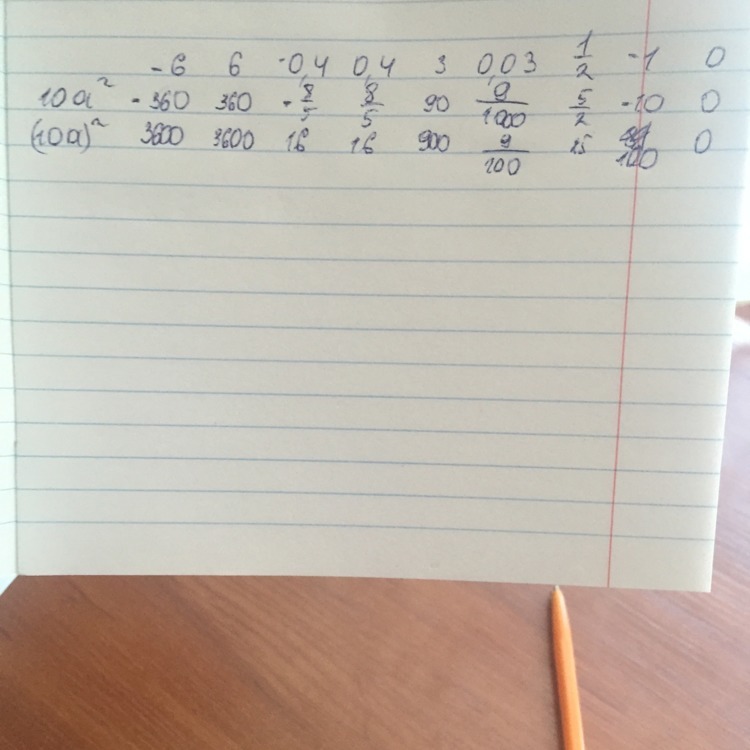 -6 6 -0,4 0,4 3 0,03 1/2 -1 0
10a² -360 360 -8/5 8/5 90 9/1000 5/2 -10 0
(10a)² 3600 3600 16 16 900 9/100 25 100 0